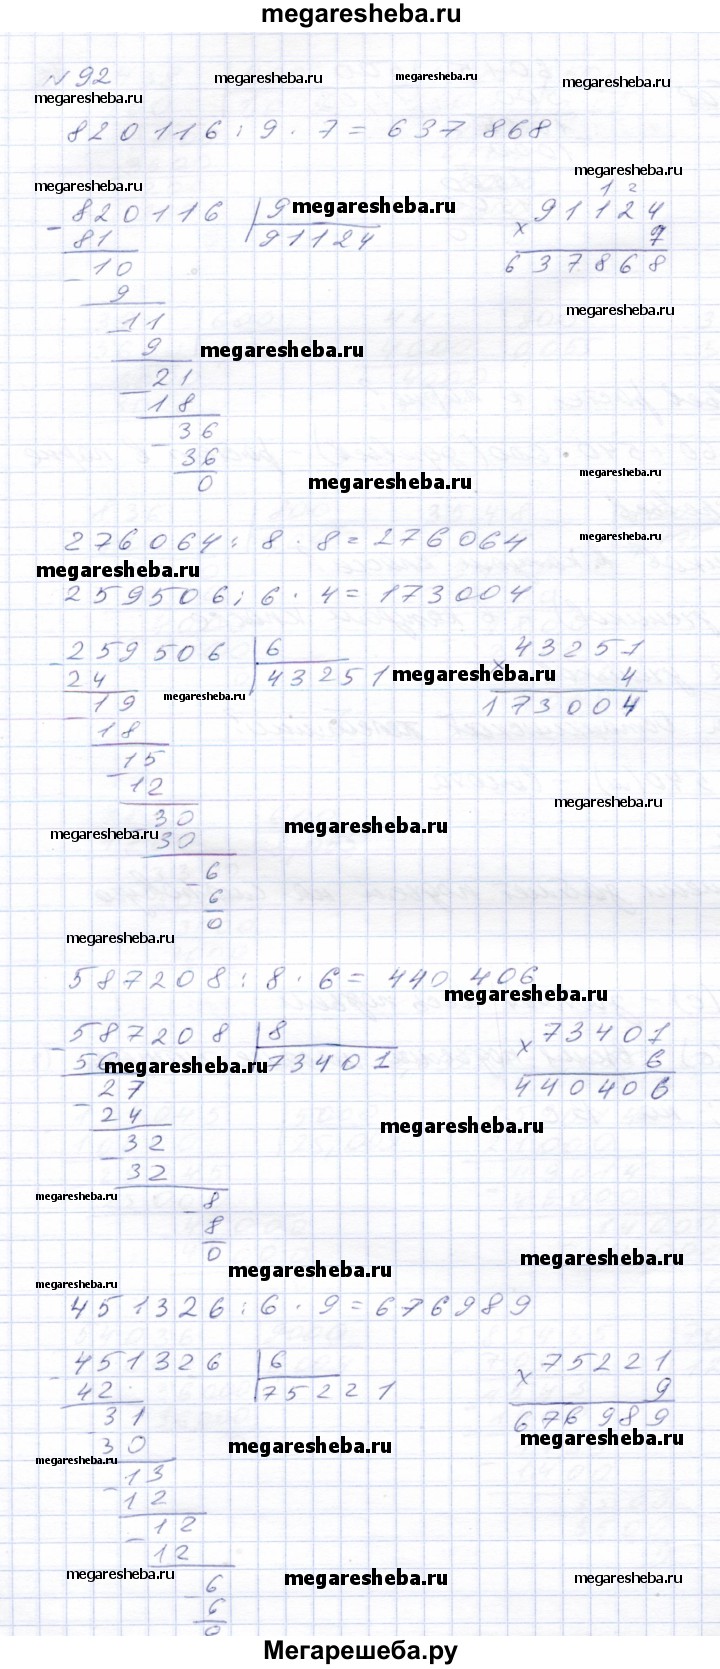 megaresheba.ru
№ 92
megaresheba.ru megaresheba.ru megaresheba.ru
megaresheba.ru
820116 : 9 · 7 = 637868
megaresheba.ru
megaresheba.ru
1 2
- 820116 | 9 megaresheba.ru × 91124
81 91124 7
- 10 637868
9
megaresheba.ru
11
9 megaresheba.ru
- 21
18
- 36
36 megaresheba.ru
0 megaresheba.ru
276064 : 8 · 8 = 276064
megaresheba.ru
megaresheba.ru
259506 : 6 · 4 = 173004
- 259506 | 6 × 43251
24 43251 megaresheba.ru 4
- 19 megaresheba.ru 173004
18
- 15
12
30 megaresheba.ru
megaresheba.ru 30 megaresheba.ru
- 6
6
0
megaresheba.ru
587208 : 8 · 6 = 440406
megaresheba.ru
- 587208 | 8 × 73401
56 megaresheba.ru 73401 6
- 27 440406
24
megaresheba.ru
- 32
32
megaresheba.ru - 8
8
0 megaresheba.ru
megaresheba.ru
megaresheba.ru
451326 : 6 · 9 = 676989
- 451326 | 6 × 75221
42 75221 9
31 676989
30 megaresheba.ru megaresheba.ru
megaresheba.ru
- 13
12
- 12
12
megaresheba.ru - 6 megaresheba.ru megaresheba.ru
6
0
Мегарешеба.ру